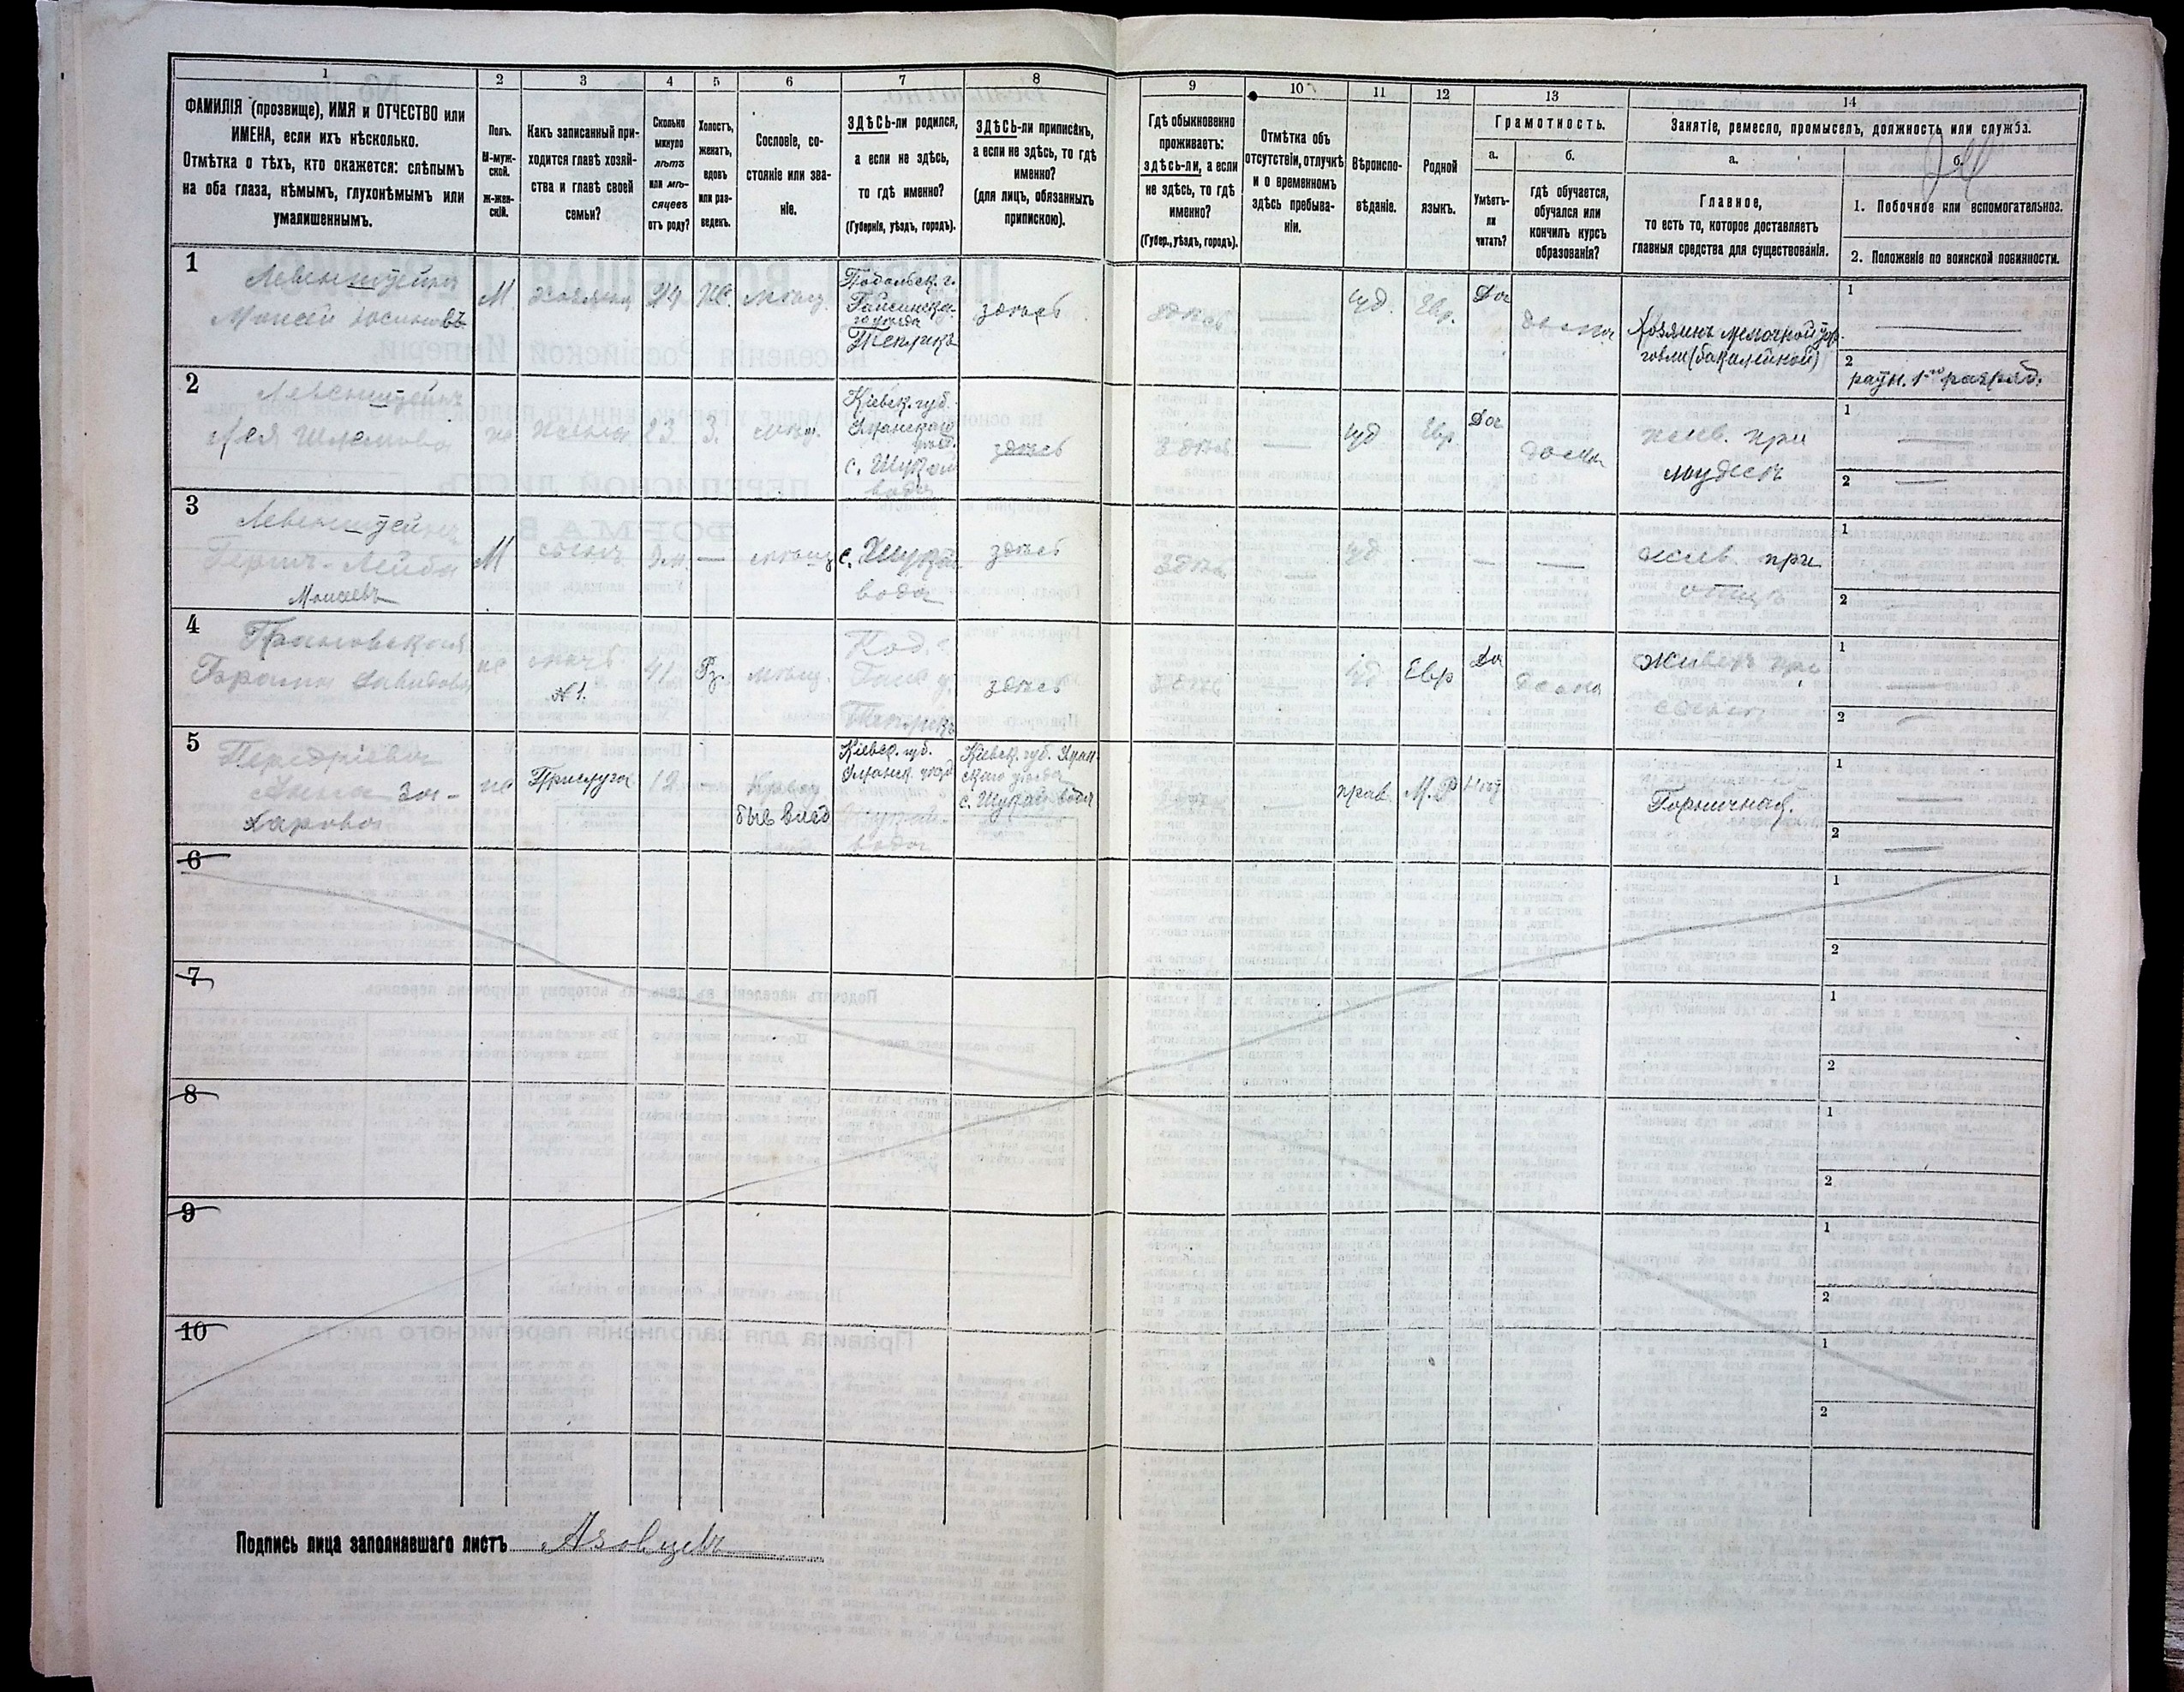 1
2
3
4
5
6
7
8
9
10
11
12
13
14
ФАМИЛІЯ (прозвище), ИМЯ и ОТЧЕСТВО или
ИМЕНА, если ихъ нѣсколько.
Отмѣтка о тѣхъ, кто окажется: слѣпымъ
на оба глаза, нѣмымъ, глухонѣмымъ или
умалишеннымъ.
Полъ.
М-муж-
ской.
Ж-жен-
скій.
Какъ записанный при-
ходится главѣ хозяй-
ства и главѣ своей
семьи?
Сколько
минуло
лѣтъ
или мѣ-
сяцевъ
отъ роду?
Холостъ,
женатъ,
вдовъ
или раз-
веденъ.
Сословіе, со-
стояніе или зва-
ніе.
ЗДѢСЬ-ли родился,
а если не здѣсь,
то гдѣ именно?
(Губернія, уѣздъ, городъ).
ЗДѢСЬ-ли приписанъ,
а если не здѣсь, то гдѣ
именно?
(для лицъ, обязанныхъ
припискою).
Гдѣ обыкновенно
проживаетъ:
ЗДѢСЬ-ли, а если
не здѣсь, то гдѣ
именно?
(Губер., уѣздъ, городъ).
Отмѣтка объ
отсутствіи, отлучкѣ
и о временномъ
здѣсь пребыва-
ніи.
Вѣроиспо-
вѣданіе.
Родной
языкъ.
Грамотность.
а.
Умѣетъ-
ли
читать?
б.
гдѣ обучается,
обучался или
кончилъ курсъ
образованія?
Занятіе, ремесло, промыселъ, должность или служба.
а.
Главное,
то есть то, которое доставляетъ
главныя средства для существованія.
б.
1. Побочное или вспомогательное.
2. Положеніе по воинской повинности.
1
Левенштейнъ
Моисей Іосиновъ
М
хозяинъ
24
Ж.
мѣщ.
Подольск. г.
Гайсинска-
го уѣзда
Тепликъ
здѣсь
здѣсь
—
Іуд.
Евр.
Да
дома
Хозяинъ мелочной тор-
говли (бакалейной)
1
—
2
ратн. 1-го разряд.
2
Левенштейнъ
Лея Шлемова
ж
жена
23.
З.
мѣщ.
Кіевск. губ.
Уманскаго
уѣзд.
с. Шукай
вода
здѣсь
здѣсь
—
Іуд
Евр.
Да
дома
жив. при
мужѣ
1
—
2
—
3
Левенштейнъ
Гершъ-Лейба
Моисеевъ
М
сынъ
9 м.
—
мѣщ
с. Шукай
вода
здѣсь
здѣсь
—
Іуд
—
—
—
жив. при
отцѣ
1
2
—
4
Бразна Давидова
ж
мать
№ 1.
41
мѣщ.
Под. г.
Гайс. у.
Тепликъ
здѣсь
здѣсь
—
Іуд
Евр
Да
дома
Живетъ при
сынѣ
1
—
2
—
5
Анна За-
харова
ж
Прислуга
12
—
Крест
быв влад
Кіевск. губ.
Уманск. уѣзд
Шукай-
вода
Кіевск. губ. Уман-
скаго уѣзда
с. Шукай вода
здѣсь
—
прав.
М. Р
Нѣт
Горничная.
1
—
2
—
6
1
2
7
1
2
8
1
2
9
1
2
10
1
2
Подпись лица заполнявшаго листъ Азовцевъ